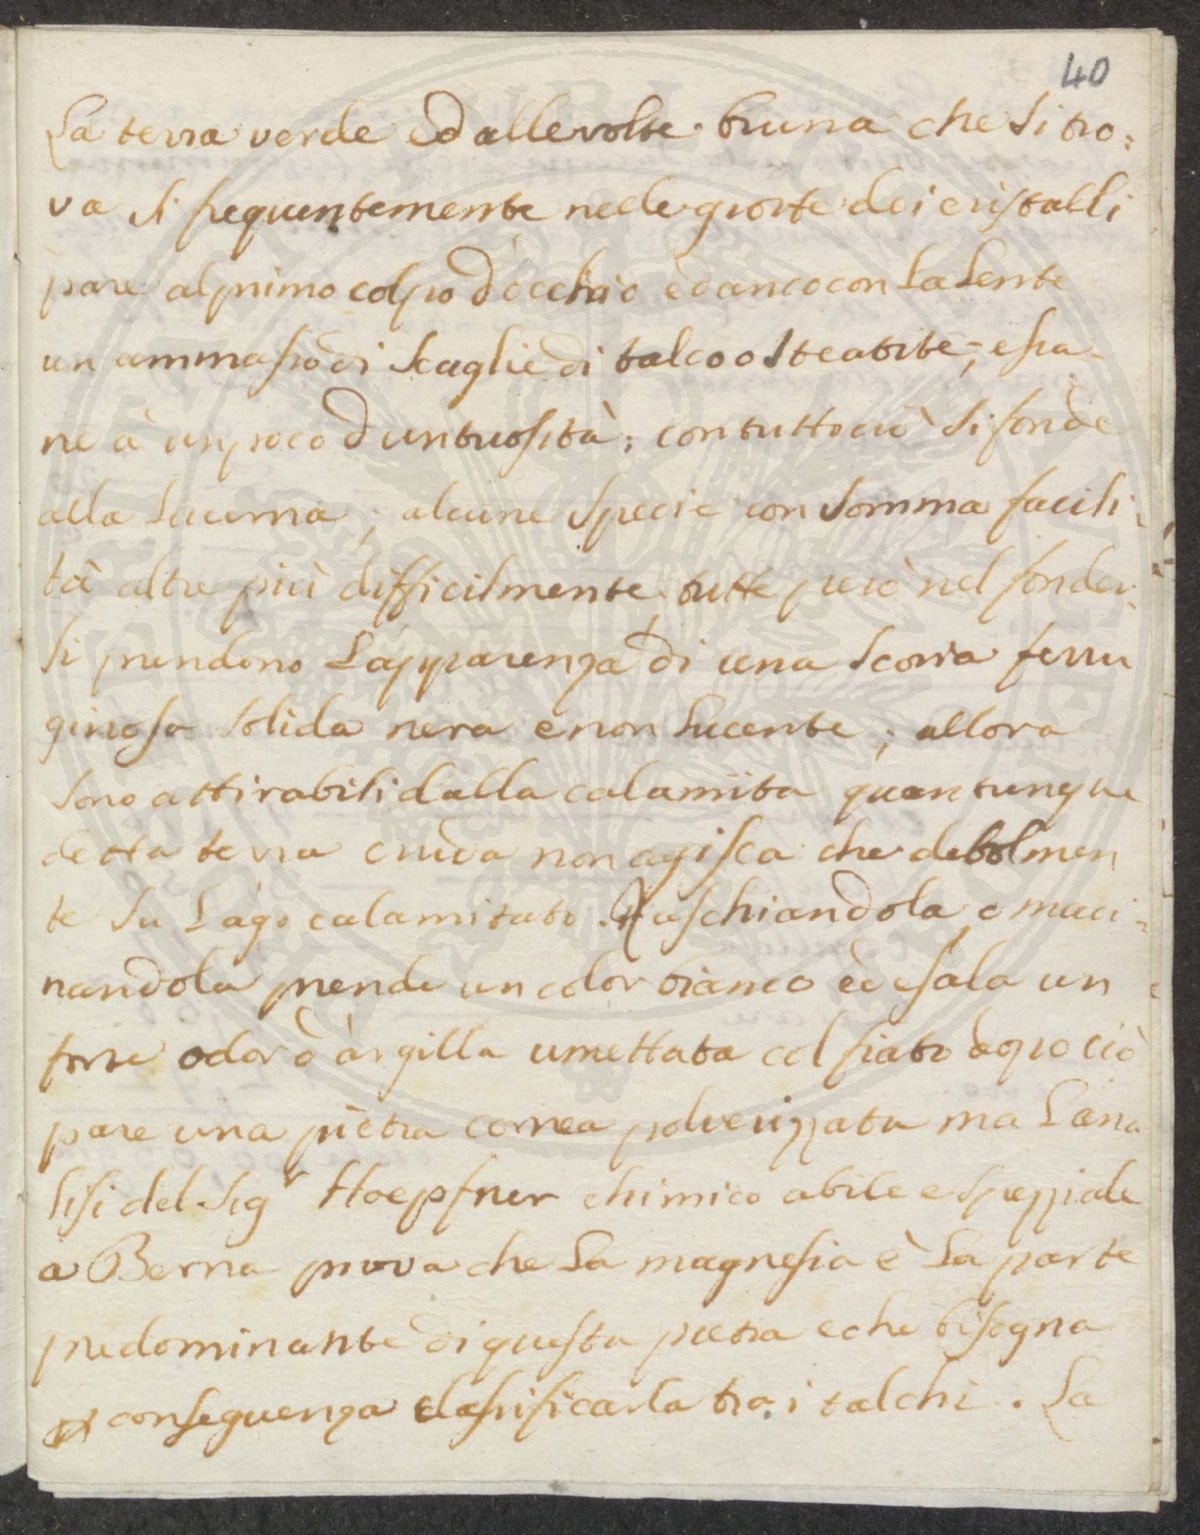 40
La terra verde ed alle volte bruna che si tro:
va si frequentemente nelle grotte dei cristalli
pare al primo colpo d'occhio ed anco con la lente
un ammasso di scaglie di talco o steatite; essa
ne à un poco d'untuosità; con tutto ciò si fonde
alla lucerna; alcune specie con somma facili:
tà altre più difficilmente. tutte però nel fonder:
si prendono l'apparenza di una scoria ferru
ginosa solida nera e non lucente; allora
sono attirabili dalla calamita quantunque
detta terra cruda non agisca che debolmen
te su l'ago calamitato. Raschiandola, o maci:
nandola prende un color bianco ed esala un
forte odor d'argilla umettata col fiato dopo ciò
pare una pietra cornea polverizzata ma l'ana
lisi del Sig.r Hoepfner chimico abile e speziale
a Berna prova che la magnesia è la parte
predominante di questa pietra e che bisogna
conseguenza classificarla tra i talchi. La